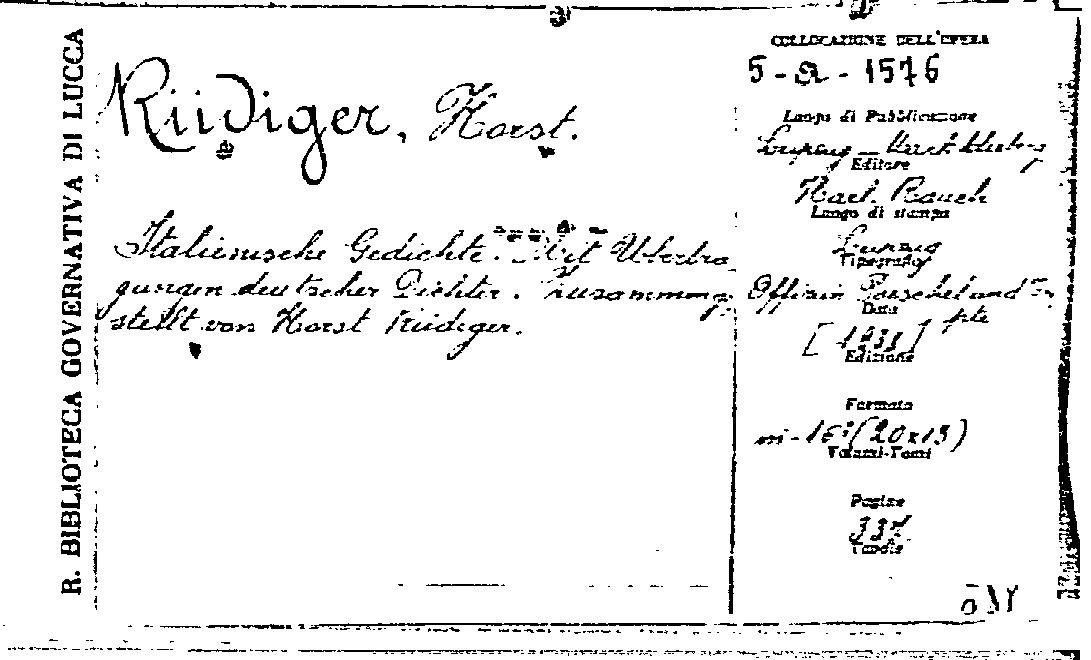 R. BIBLIOTECA GOVERNATIVA DI LUCCA
Rüdiger, Horst.
Italienische Gedichte. Mit Übertra
gungen deutscher Dichter. Zusammeng
stellt von Horst Rüdiger.
COLLOCAZIONE DELL'OPERA
5 - a - 1576
Luogo di Pubblicazione
Leipzig - Markkleeberg
Editore
Karl Rauch
Luogo di stampa
Leipzig
Tipografo
Offizin Poeschel and Tre
pte
Data
[1938]
Edizione
Formato
in-16° (20x13)
Volumi-Tomi
Pagine
337
Tavole